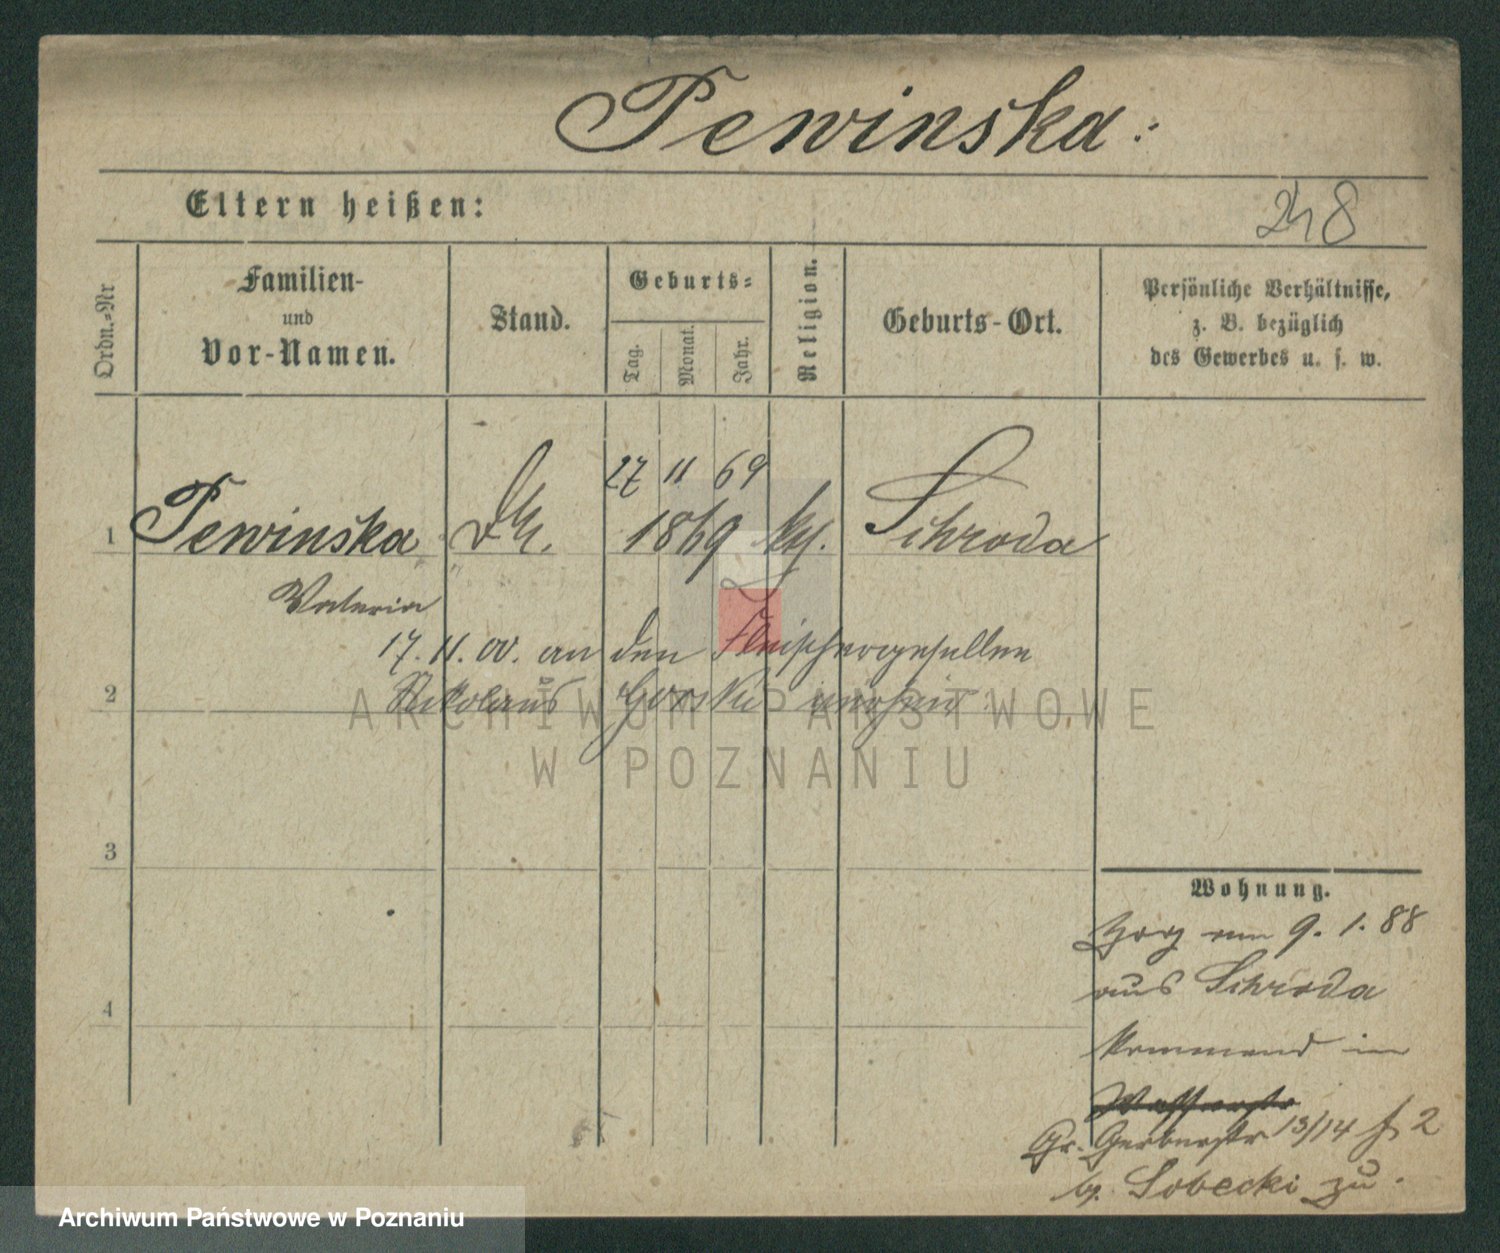 Pewinska
Eltern heißen:
248
Ordn.-Nr
Familien-
und
Vor-Namen.
Stand.
Geburts-
Tag.
Monat.
Jahr.
Religion.
Geburts-Ort.
Persönliche Verhältnisse,
z. B. bezüglich
des Gewerbes u. s. w.
27 11 69
1 Pewinska 1869 Schroda
Valeria
17. 11. 00. an den Fleischergesellen
2 Nikolaus Gorski
ARCHIWUM PAŃSTWOWE
W POZNANIU
3
4
Wohnung.
9. 1. 88
aus Schroda
kommend in
Gr. Gerberstr 13/14 2
Sobecki zu.
Archiwum Państwowe w Poznaniu